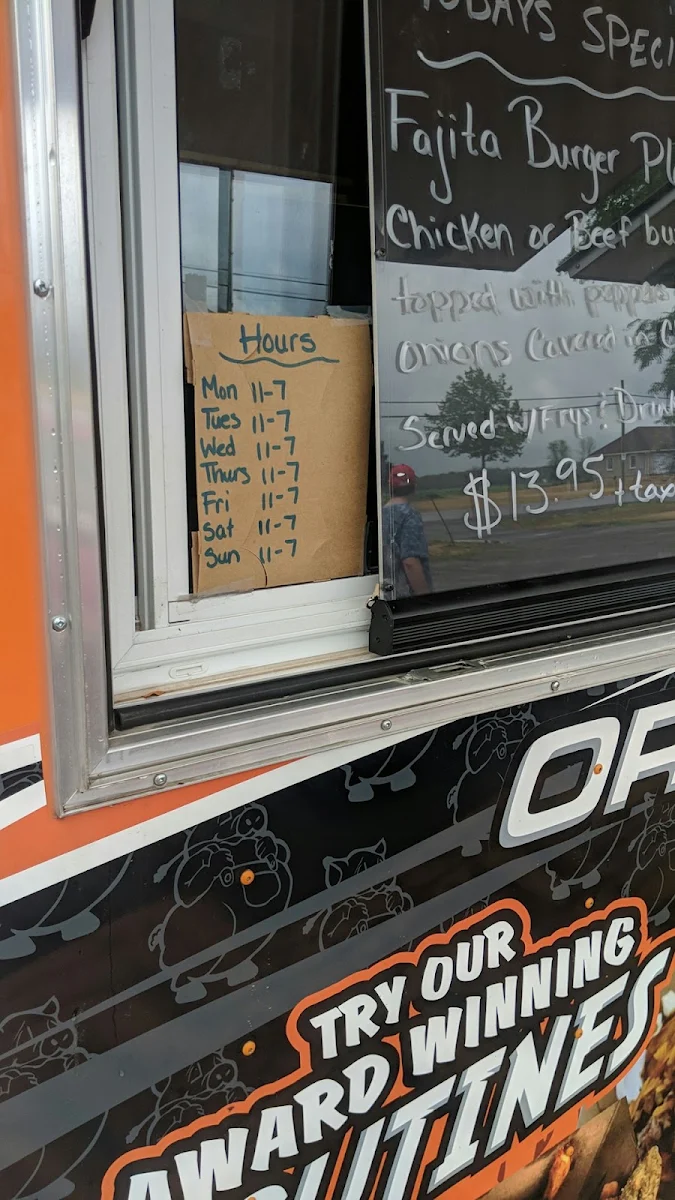 TODAYS SPECI
Fajita Burger Pl
Chicken or Beef bu
topped with peppers
Onions Covered in C
Served w/Frys & Drin
$13.95 + tax
Hours
Mon 11-7
Tues 11-7
Wed 11-7
Thurs 11-7
Fri 11-7
Sat 11-7
Sun 11-7
OR
TRY OUR
AWARD WINNING
UTINES